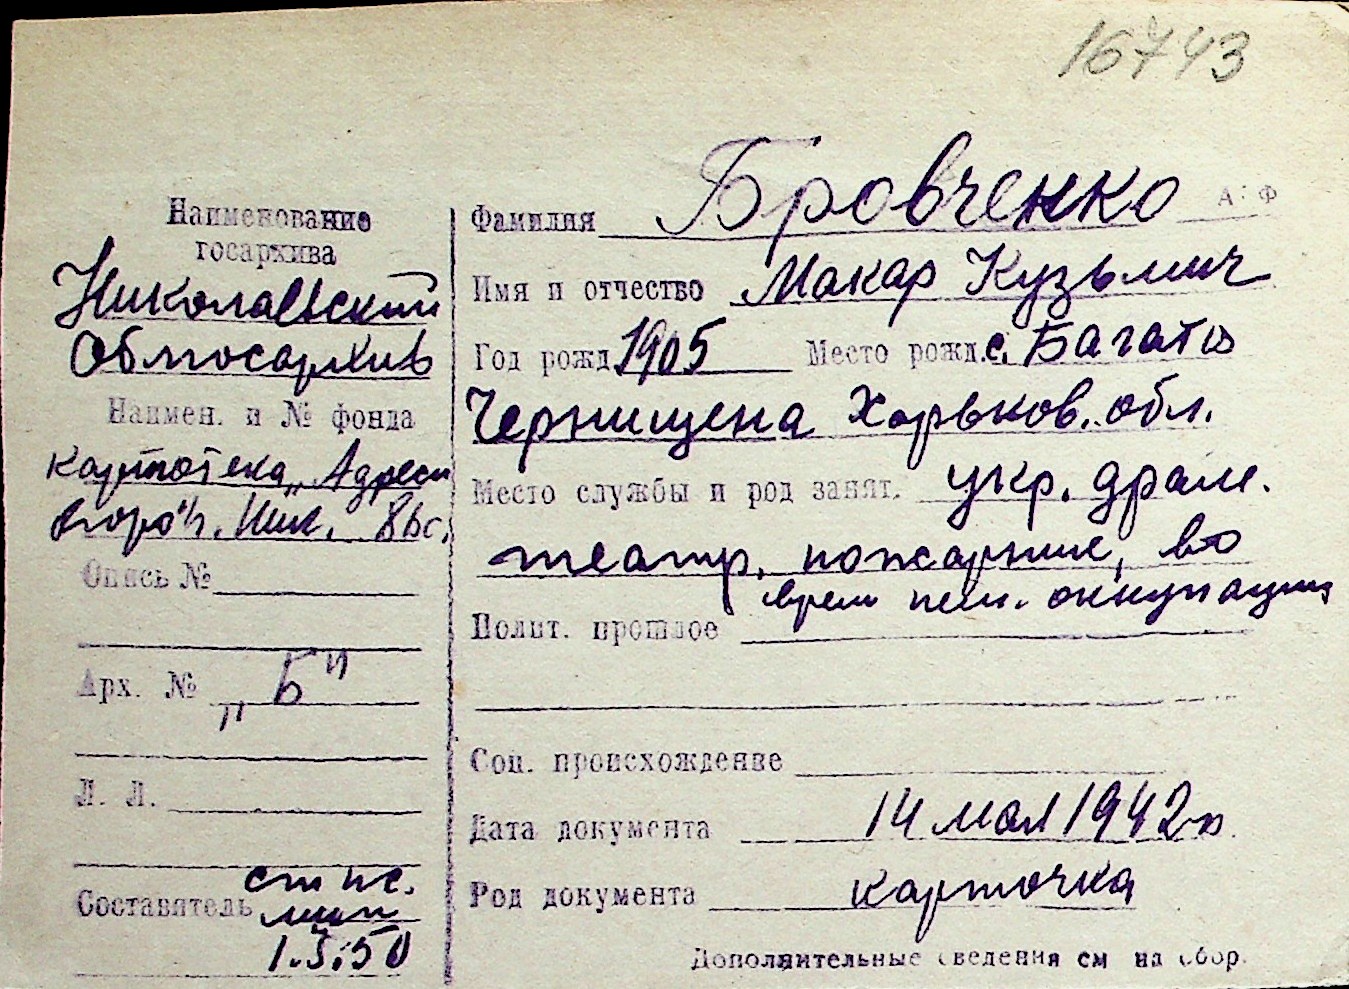 16743
Наименование
госархива
Николаевский
Облгосархив
Наимен. и № фонда
картотека „Адресн
Опись №
Арх. № „Б"
Л. Л.
Составитель
1.3.50
Фамилия Бровченко А. Ф
Имя и отчество Макар Кузьмич
Год рожд 1905 Место рожд. с. Багата
Чернищена Харьков. обл.
Место службы и род занят. укр. драм.
театр. пожарник, во
время нем. оккупации
Полит. прошлое
Соц. происхождение
Дата документа 14 мая 1942 г.
Род документа карточка
Дополнительные сведения см на обор.